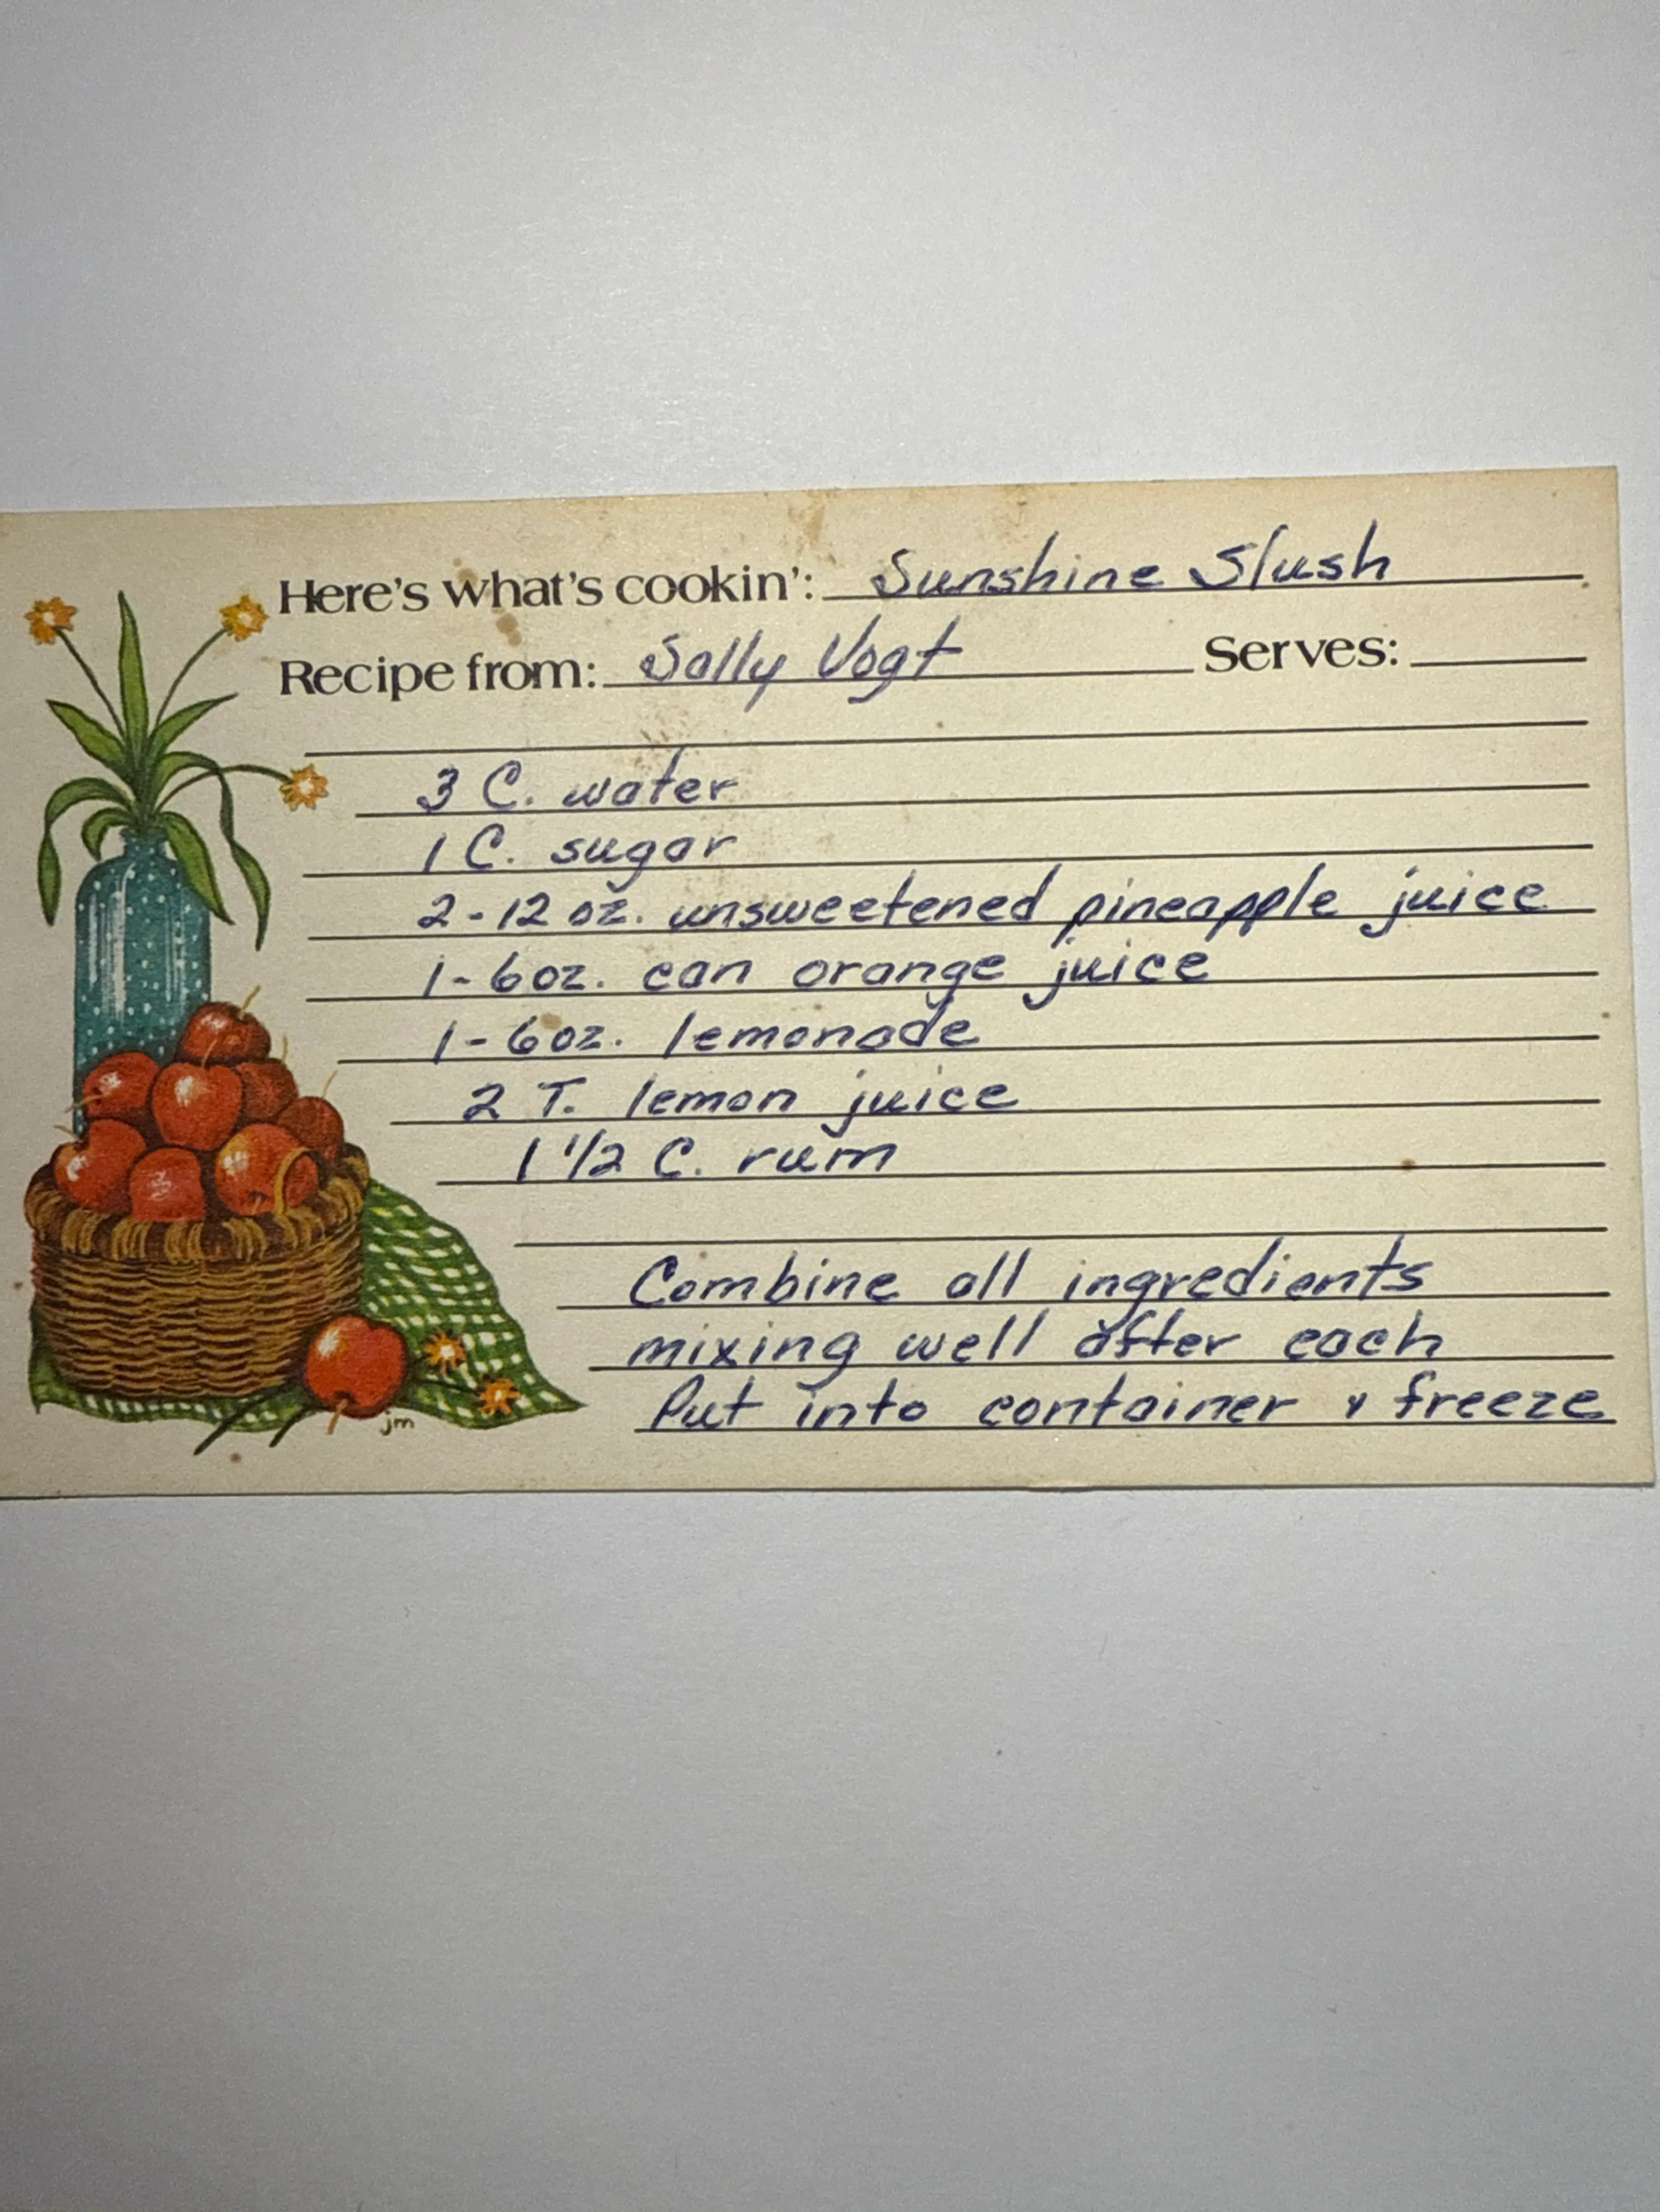 Here's what's cookin': Sunshine Slush
Recipe from: Sally Vogt Serves:
3 C. water
1 C. sugar
2-12 oz. unsweetened pineapple juice
1-6oz. can orange juice
1-6oz. lemonade
2 T. lemon juice
1 1/2 C. rum
Combine all ingredients
mixing well after each
Put into container & freeze
jm